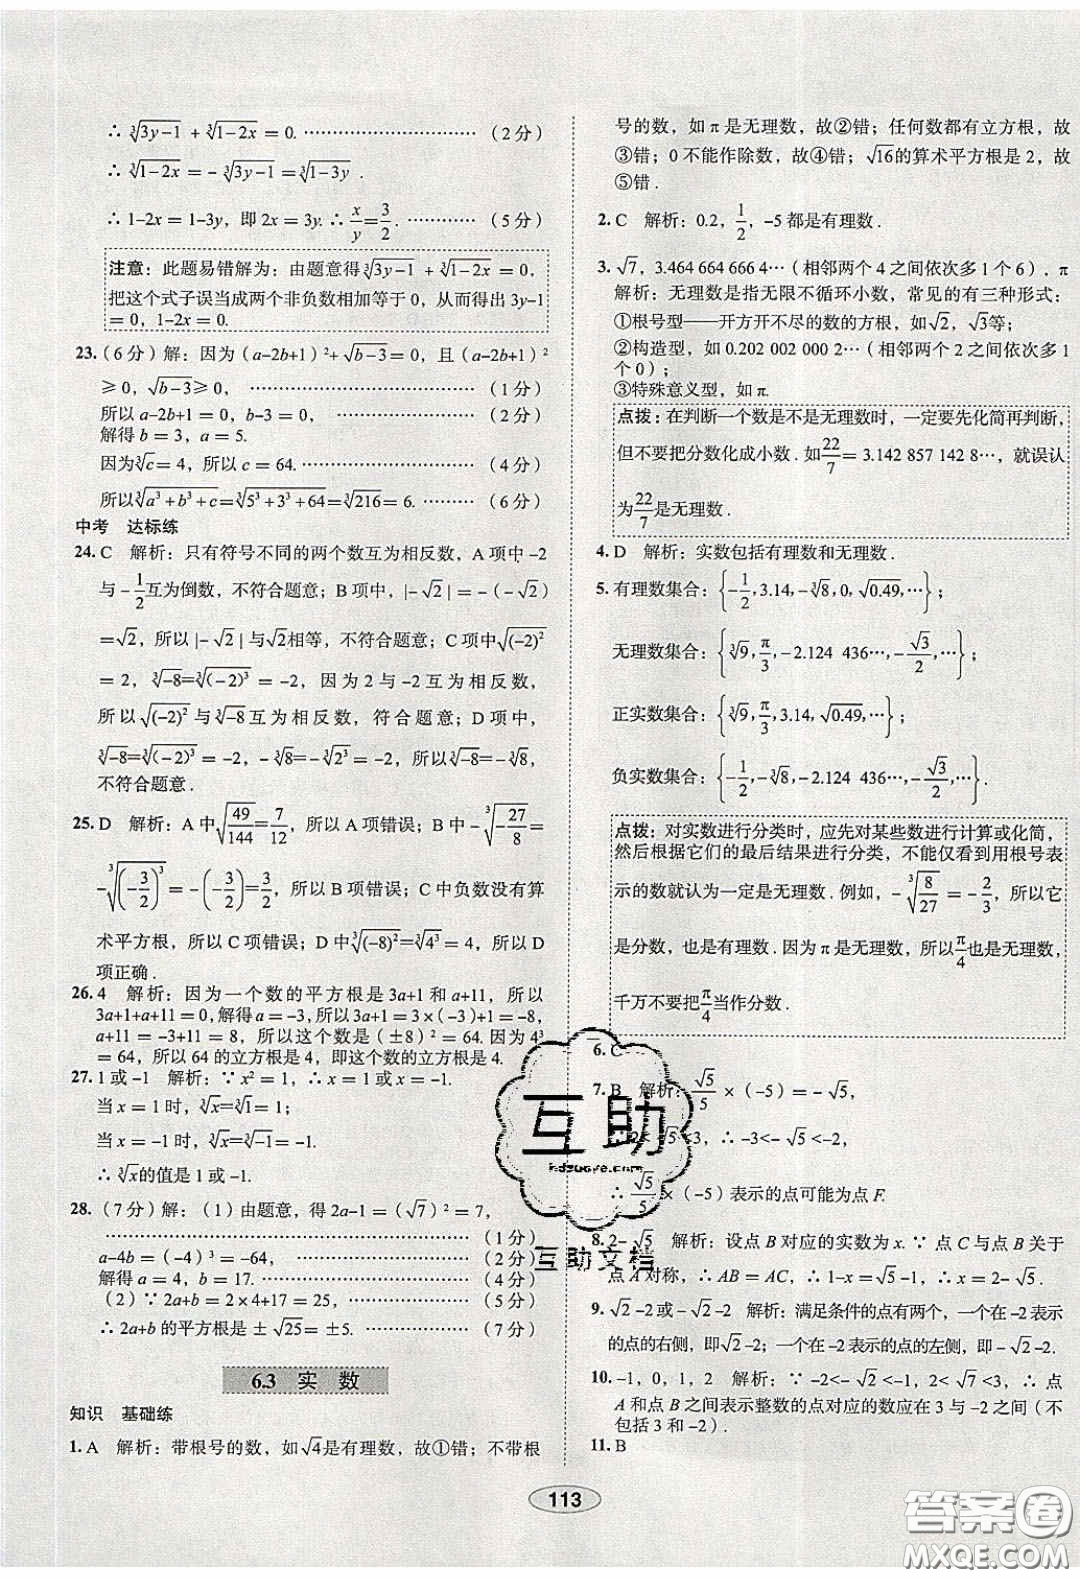 ∴ ∛(3y-1) + ∛(1-2x) = 0. ………………………… (2分)
∴ ∛(1-2x) = -∛(3y-1) = ∛(1-3y).
∴ 1-2x = 1-3y, 即 2x = 3y. ∴ x/y = 3/2. ………… (5分)
注意: 此题易错解为: 由题意得∛(3y-1) + ∛(1-2x) = 0,
把这个式子误当成两个非负数相加等于 0, 从而得出 3y-1
= 0, 1-2x = 0.
23. (6分)解: 因为 (a-2b+1)²+√(b-3) = 0, 且 (a-2b+1)²
≥ 0, √(b-3) ≥ 0, ………………………………… (1分)
所以 a-2b+1 = 0, b-3 = 0. …………………… (2分)
解得 b = 3, a = 5.
因为∛c = 4, 所以 c = 64. ……………………… (4分)
所以∛(a³+b³+c) = ∛(5³+3³+64) = ∛216 = 6. ……… (6分)
中考 达标练
24. C 解析: 只有符号不同的两个数互为相反数, A 项中 -2
与 -1/2互为倒数, 不符合题意; B 项中, |-√2| = -(-√2)
= √2, 所以 |-√2| 与√2相等, 不符合题意; C 项中√(-2)²
= 2, ∛-8 = ∛(-2)³ = -2, 因为 2 与 -2 互为相反数,
所以 √(-2)² 与 ∛-8 互为相反数, 符合题意; D 项中,
∛-8 = ∛(-2)³ = -2, -∛8 = -∛2³ = -2, 所以∛-8 = -∛8,
不符合题意.
25. D 解析: A 中√(49/144) = 7/12, 所以 A 项错误; B 中 -∛(-27/8) =
-∛(-3/2)³ = -(-3/2) = 3/2, 所以 B 项错误; C 中负数没有算
术平方根, 所以 C 项错误; D 中∛(-8)² = ∛4³ = 4, 所以 D
项正确.
26. 4 解析: 因为一个数的平方根是 3a+1 和 a+11, 所以
3a+1+a+11 = 0, 解得 a = -3, 所以 3a+1 = 3×(-3)+1 = -8,
a+11 = -3+11 = 8, 所以这个数是 (±8)² = 64. 因为 4³
= 64, 所以 64 的立方根是 4, 即这个数的立方根是 4.
27. 1 或 -1 解析: ∵ x² = 1, ∴ x = ±1.
当 x = 1 时, ∛x = ∛1 = 1;
当 x = -1 时, ∛x = ∛-1 = -1.
∴ ∛x的值是 1 或 -1.
28. (7分)解: (1) 由题意, 得 2a-1 = (√7)² = 7,
………………………………………………… (1分)
a-4b = (-4)³ = -64, ………………………… (2分)
解得 a = 4, b = 17. …………………………… (4分)
(2) ∵ 2a+b = 2×4+17 = 25, ……………… (5分)
∴ 2a+b 的平方根是 ±√25 = ±5. ……………… (7分)
6.3 实 数
知识 基础练
1. A 解析: 带根号的数, 如√4是有理数, 故①错; 不带根
号的数, 如 π 是无理数, 故②错; 任何数都有立方根, 故
③错; 0 不能作除数, 故④错; √16的算术平方根是 2, 故
⑤错.
2. C 解析: 0.2, 1/2, -5 都是有理数.
3. √7, 3.464 664 666 4… (相邻两个 4 之间依次多 1 个 6), π
解析: 无理数是指无限不循环小数, 常见的有三种形式:
①根号型——开方开不尽的数的方根, 如√2, √3等;
②构造型, 如 0.202 002 000 2… (相邻两个 2 之间依次多 1
个 0);
③特殊意义型, 如 π.
点拨: 在判断一个数是不是无理数时, 一定要先化简再判断,
但不要把分数化成小数. 如22/7 = 3.142 857 142 8…, 就误认
为22/7是无理数.
4. D 解析: 实数包括有理数和无理数.
5. 有理数集合: {-1/2, 3.14, -∛8, 0, √0.49, …};
无理数集合: {∛9, π/3, -2.124 436…, -√3/2, …};
正实数集合: {∛9, π/3, 3.14, √0.49, …};
负实数集合: {-1/2, -∛8, -2.124 436…, -√3/2, …}.
点拨: 对实数进行分类时, 应先对某些数进行计算或化简,
然后根据它们的最后结果进行分类, 不能仅看到用根号表
示的数就认为一定是无理数. 例如, -∛(8/27) = -2/3, 所以它
是分数, 也是有理数. 因为 π 是无理数, 所以π/4也是无理数,
千万不要把π/4当作分数.
6. C
7. B 解析: √5/5 × (-5) = -√5,
∵ 2<√5<3, ∴ -3<-√5<-2,
∴ √5/5 × (-5) 表示的点可能为点 F.
8. 2-√5 解析: 设点 B 对应的实数为 x. ∵ 点 C 与点 B 关于
点 A 对称, ∴ AB = AC, ∴ 1-x = √5-1, ∴ x = 2-√5.
9. √2-2 或 -√2-2 解析: 满足条件的点有两个, 一个在 -2 表示
的点的右侧, 即√2-2; 一个在 -2 表示的点的左侧, 即 -√2-2.
10. -1, 0, 1, 2 解析: ∵ -2<-√2, 2<√7<3, ∴ 点
A 和点 B 之间表示整数的点对应的数应在 3 与 -2 之间 (不
包括 3 和 -2).
11. B
113
互助
hdzuoye.com
互助文档
答案圈
MXQE.COM